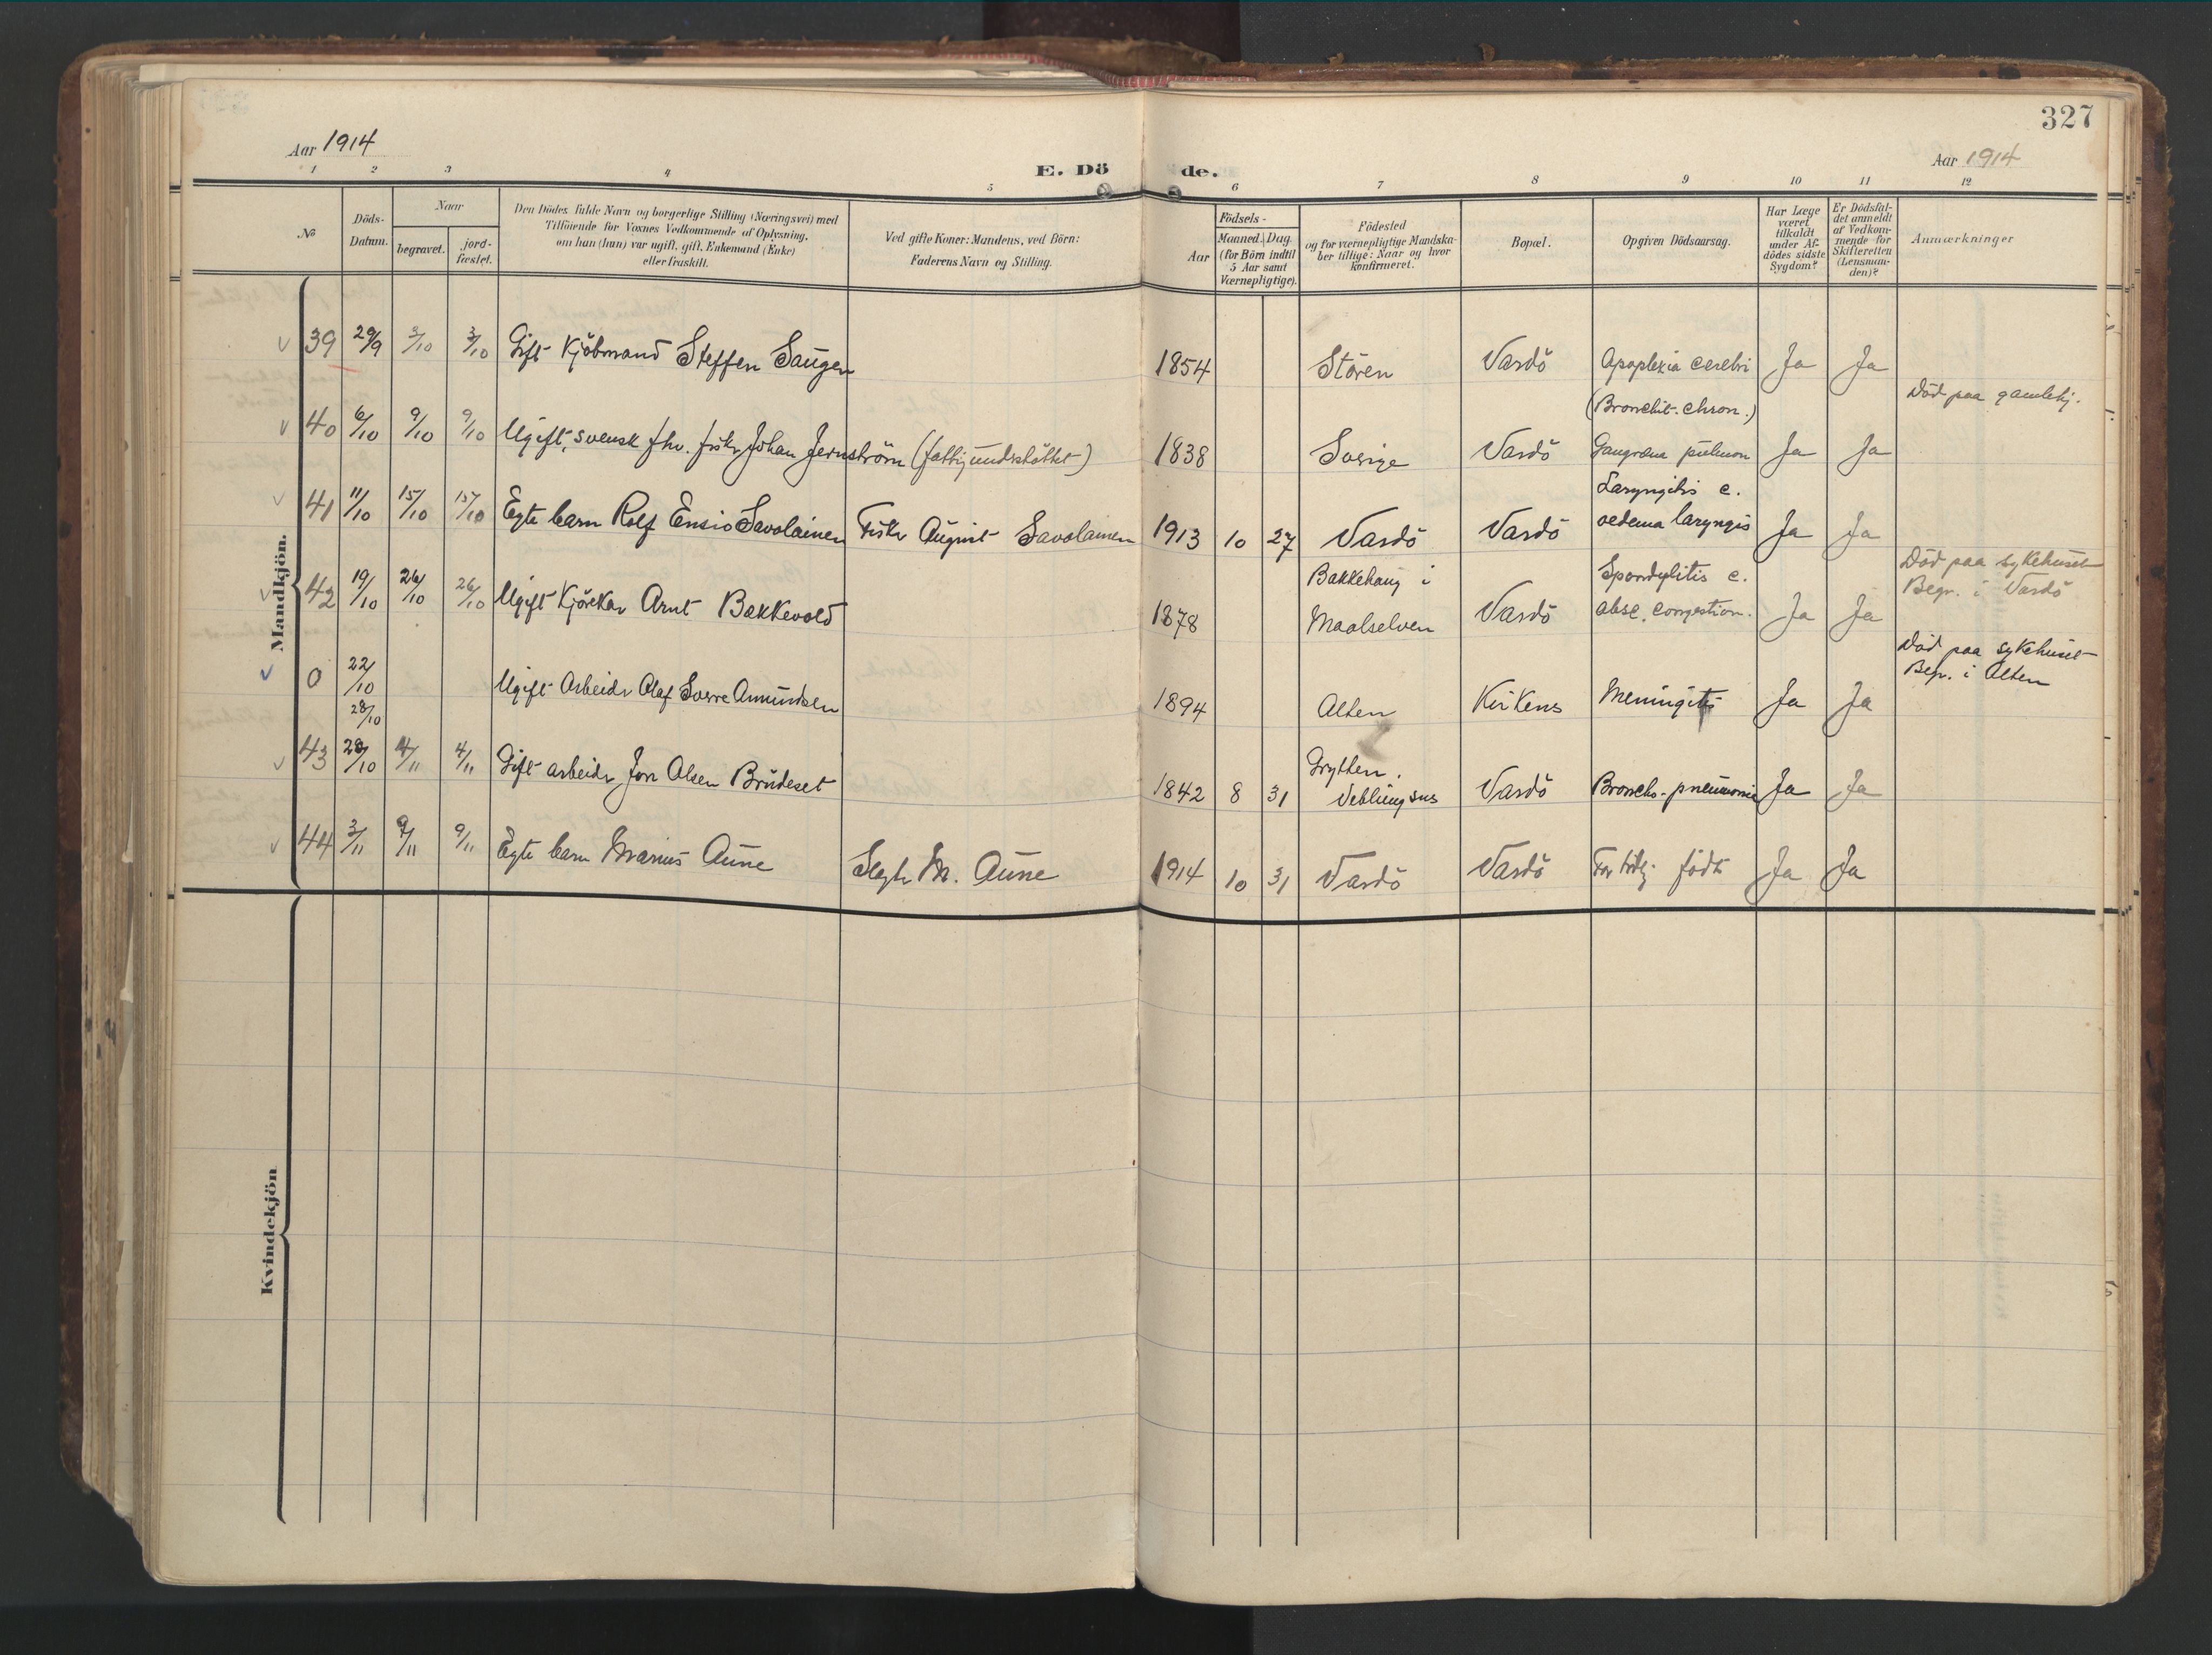 327
Aar 1914
Aar 1914
E. Dö de.
1 2 3 4 5 6 7 8 9 10 11 12
No
Döds-Datum.
Naar
begravet.
jord-fæstet.
Den Dödes fulde Navn og borgerlige Stilling (Næringsvei) med
Tilföiende for Voxnes Vedkommende af Oplysning,
om han (hun) var ugift, gift, Enkemand (Enke)
eller fraskilt.
Ved gifte Koner: Mandens, ved Börn:
Faderens Navn og Stilling.
Födsels-
Aar
Maaned. Dag.
(for Börn indtil
5 Aar samt
Værnepligtige).
Födested
og for værnepligtige Mandska-
ber tillige: Naar og hvor
konfirmeret.
Bopæl.
Opgiven Dödsaarsag.
Har Læge
været
tilkaldt
under Af-
dödes sidste
Sygdom?
Er Dödsfal-
det anmeldt
af Vedkom-
mende for
Skifteretten
(Lensman-
den)?
Anmærkninger
Mandkjön.
39 29/9 3/10 3/10 Gift Kjöbmand Steffen Saugen 1854 Stören Vardö Apoplexia cerebri Ja Ja
40 6/10 9/10 9/10 Ugift, svensk fhv. fisker Johan Jernström (fattigunderstöttet) 1838 Sverige Vardö (Bronchit. chron.) Gangræna pulmon Ja Ja Död paa gamlehj.
41 11/10 15/10 15/10 Egte barn Rolf Ensio Savolainen Fisker August Savolainen 1913 10 27 Vardö Vardö Laryngitis c. oedema laryngis Ja Ja
42 19/10 26/10 26/10 Ugift Kjörekar Arnt Bakkevold 1878 Bakkehaug i Maalselven Vardö Spondylitis c. absc. congestion. Ja Ja Död paa sykehuset Begr. i Vardö
0 22/10 28/10 Ugift Arbeider Olaf Sverre Amundsen 1894 Alten Kirkens Meningitis Ja Ja Död paa sykehuset Begr. i Alten
43 28/10 4/11 4/11 Gift arbeider Jon Olsen Brudeset 1842 8 31 Grytten. Veblungsnes Vardö Broncho-pneumonie Ja Ja
44 3/11 9/11 9/11 Egte barn Marius Aune Slagter M. Aune 1914 10 31 Vardö Vardö For tidlig födt Ja Ja
Kvindekjön